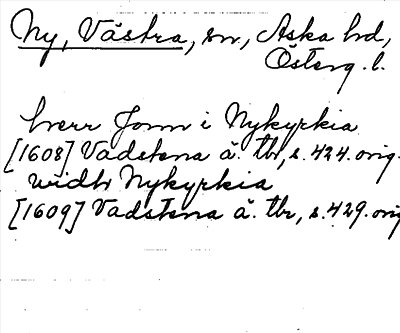 Ny, Västra, sn, Aska hd,
Österg. l.
herr Jonn i Nykyrkia
[1608] Vadstena ä. tbr, s. 424. orig.
widh Nykyrkia
[1609] Vadstena ä. tbr, s. 429. orig